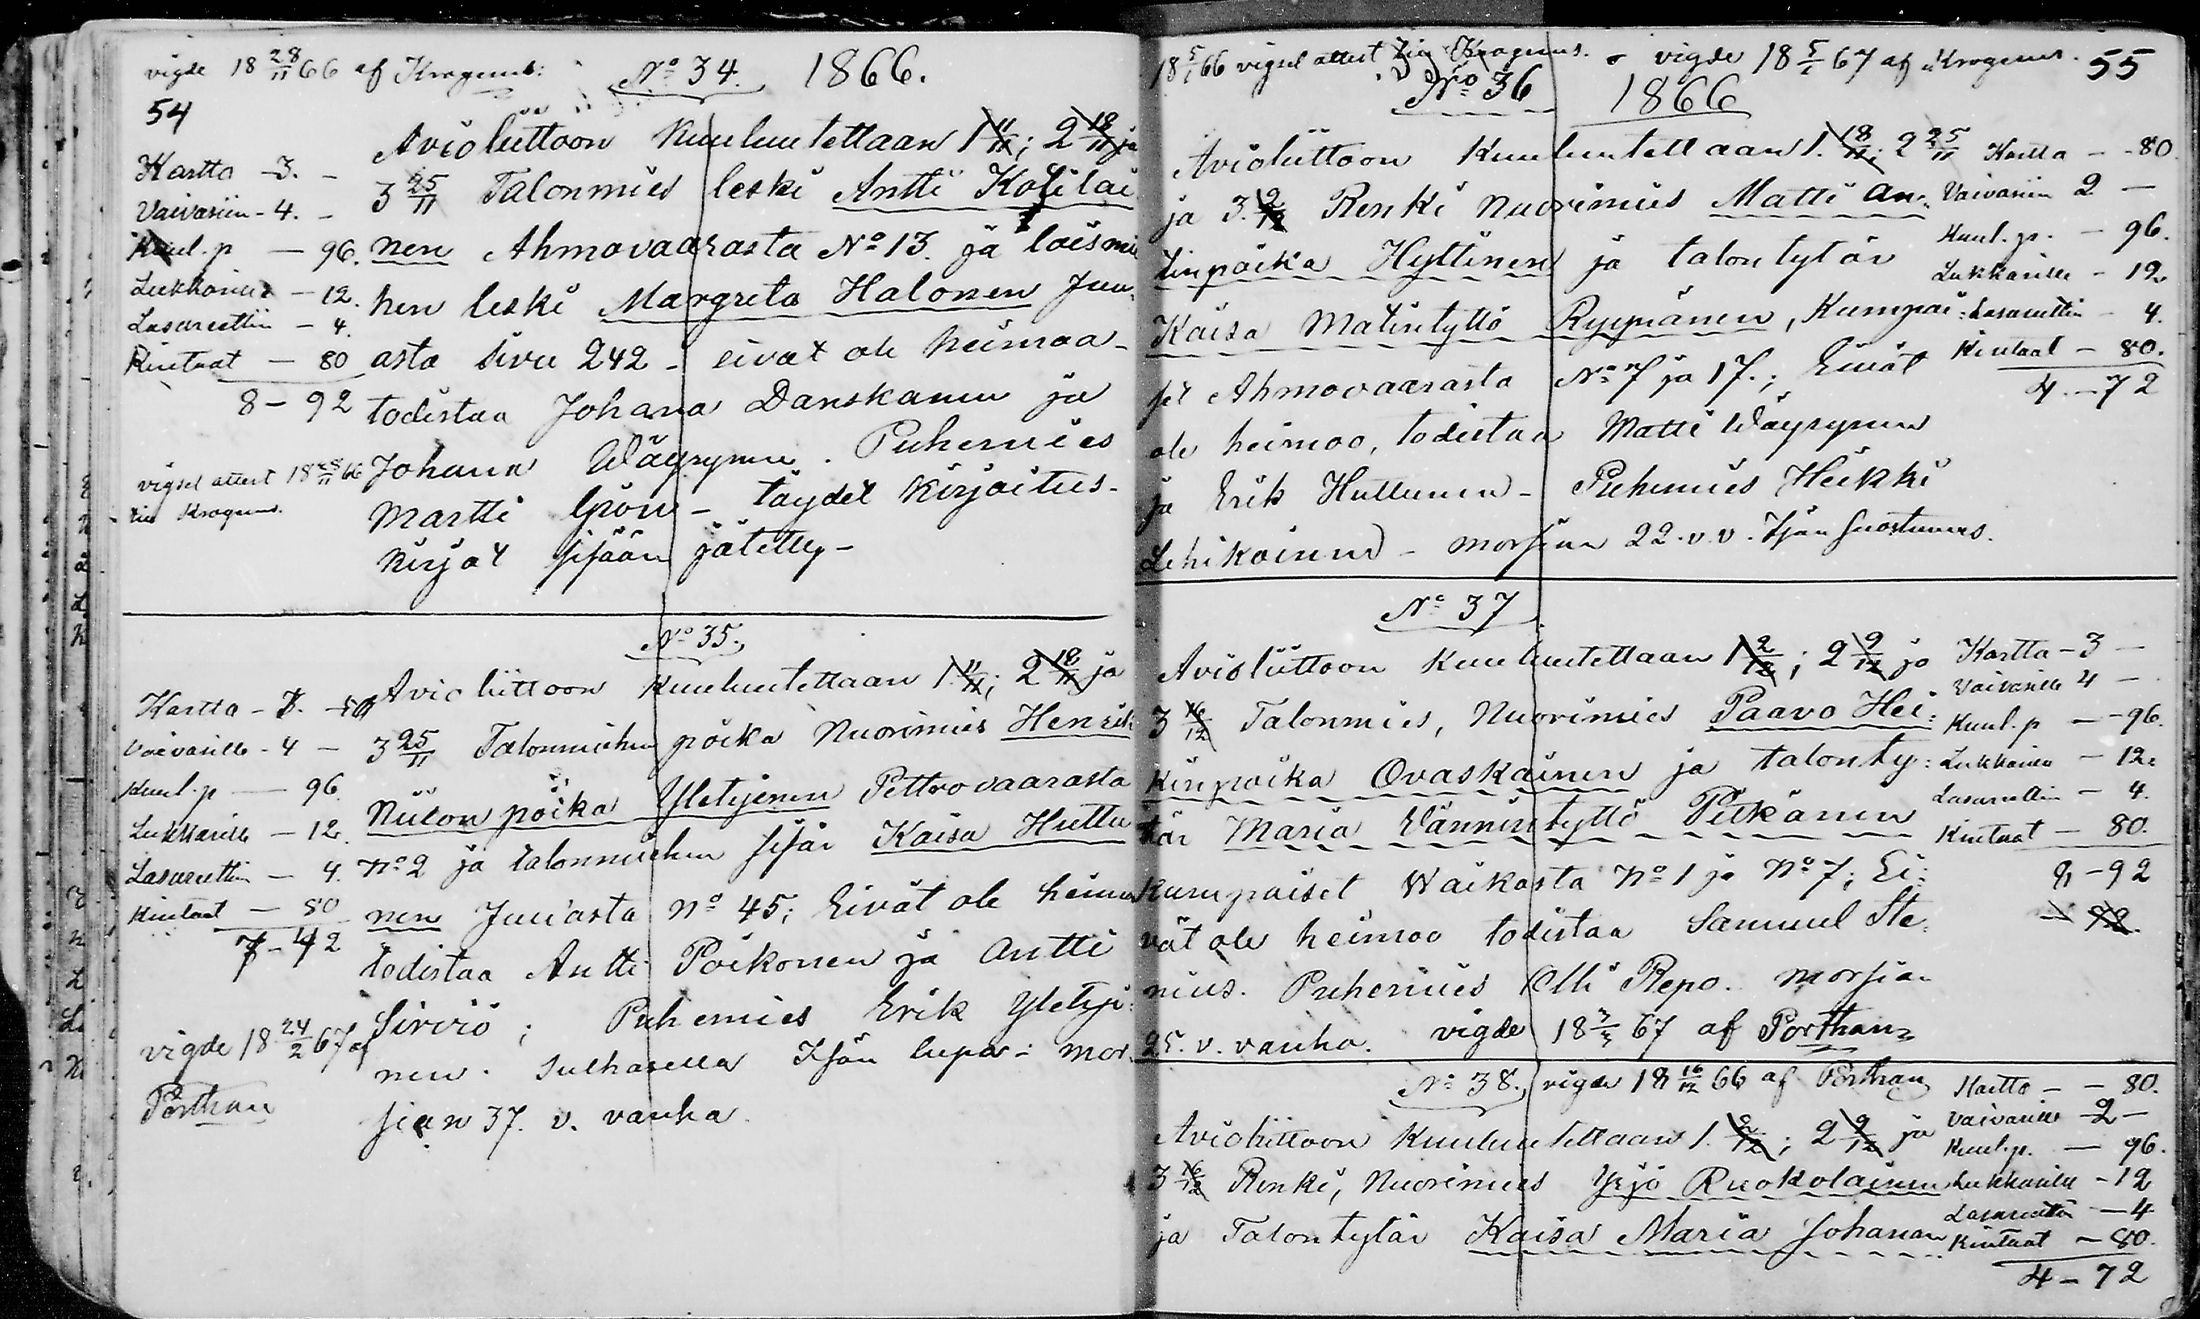 vigde 18 28/11 66 af Krogerus: No 34. 1866.
54
Avioliittoon Kuulutettaan 1 11/11; 2 18/11 ja
3 25/11 Talonmies leski Antti Kotilai
nen Ahmovaarasta No 13. ja loismie
hen leski Margreta Halonen Juu-
asta sivu 242 - eivät ole heimoa -
todistaa Johana Danskanen ja
Johana Wäyrynen. Puhemies
Martti - täydet Kirjoitus-
Kirjat sisään jätetty -
Kartta - 3. -
Vaivasiin - 4. -
Kuul. p - 96.
Lukkarille - 12.
Lasarettiin - 4.
Kintaat - 80
8 - 92
vigsel attest 18 28/11 66
Krogerus.
No 35.
Avioliittoon Kuulutettaan 1 11/11; 2 18/11 ja
3 25/11 Talonmiehen poika Nuorimies Henrik
Niilon poika Yletyinen Pettrovaarasta
No 2 ja talonmiehen sisär Kaisa Huttu
nen Juuasta No 45; Eivät ole heimoa
todistaa Antti Poikonen ja Antti
Sirviö; Puhemies Erik Yletyi-
nen. Sulhasella Isän lupa - mor-
sian 37. v. vanha.
Kartta -
Vaivasille - 4 -
Kuul. p - 96
Lukkarille - 12.
Lasarettiin - 4.
Kintaat - 80
7 - 42
vigde 18 24/2 67 af
Porthan
18 5/1 66 vigsel attest Krogerus. - vigde 18 5/1 67 af Krogerus. 55
No 36 1866
Avioliittoon Kuulutettaan 1. 18/11; 2 25/11
ja 3. 2/12 Renki Nuorimies Matti An-
tinpoika Hyttinen ja talon tytär
Kaisa Matintyttö Ryynänen, Kumpai-
set Ahmovaarasta No 7 ja 17.; Eivät
ole heimoo, todistaa Matti Wäyrynen
ja Erik Huttunen - Puhemies Heikki
Lehikoinen - morsian 22. v. v. Isän suostumus.
Kartta - - 80.
Vaivasiin 2 -
Kuul. p. - 96.
Lukkarille - 12
Lasarettiin - 4.
Kintaat - 80.
4. - 72
No 37
Avioliittoon Kuulutettaan 1 2/12; 2 9/12 ja
3 16/12 Talonmies, Nuorimies Paavo Hei-
kinpoika Ovaskainen ja talonty-
tär Maria Vännintyttö Pitkänen
kumpaiset Waikosta No 1 ja No 7; Ei-
vät ole heimoo todistaa Samuel Ste-
nius. Puhemies Olli Repo. morsian
25. v. vanha. vigde 18 3/3 67 af Porthan
Kartta - 3 -
Vaivasille 4 -
Kuul. p - - 96.
Lukkarille - 12.
Lasarettiin - 4.
Kintaat - 80.
8 - 92
No 38. vigde 18 16/12 66 af Porthan
Avioliittoon Kuulutettaan 1. 2/12; 2 9/12 ja
3 16/12 Renki, Nuorimies Yrjö Ruokolainen
ja Talontytär Kaisa Maria Johanan
Kartta - - 80.
Vaivasille - 2 -
Kuul. p. - 96.
Lukkarille - 12
Lasarettiin - 4
Kintaat - 80.
4 - 72